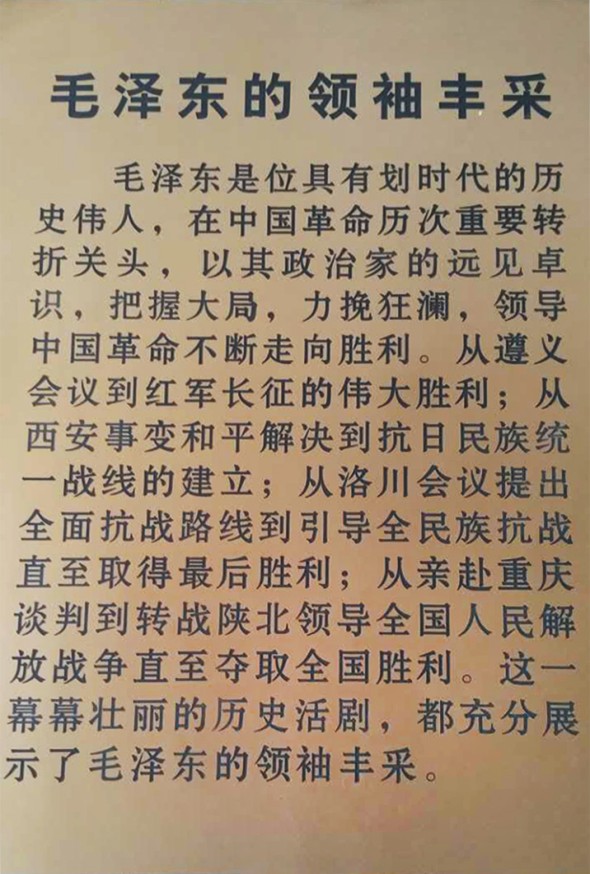 毛泽东的领袖丰采
毛泽东是位具有划时代的历
史伟人，在中国革命历次重要转
折关头，以其政治家的远见卓
识，把握大局，力挽狂澜，领导
中国革命不断走向胜利。从遵义
会议到红军长征的伟大胜利；从
西安事变和平解决到抗日民族统
一战线的建立；从洛川会议提出
全面抗战路线到引导全民族抗战
直至取得最后胜利；从亲赴重庆
谈判到转战陕北领导全国人民解
放战争直至夺取全国胜利。这一
幕幕壮丽的历史活剧，都充分展
示了毛泽东的领袖丰采。